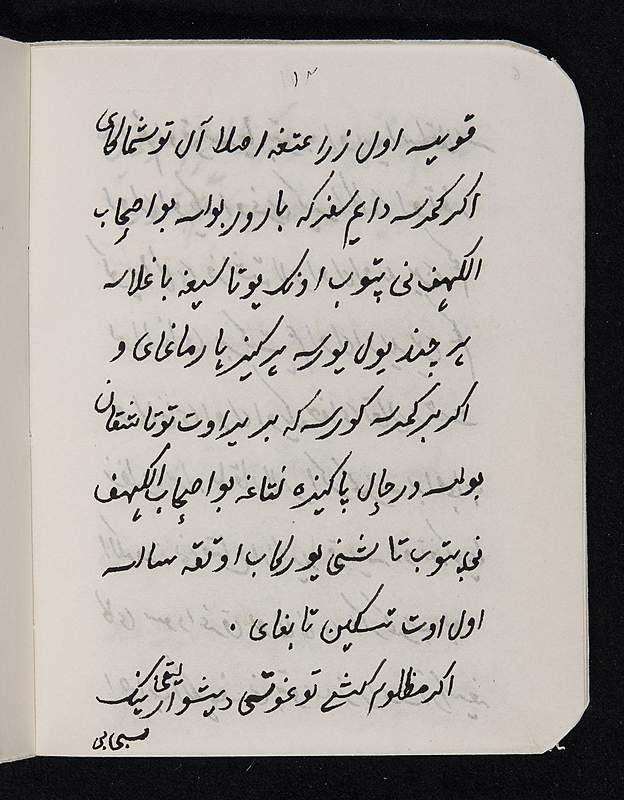 ۱۳
قویسه اول زراعتغه اصلا آل توشماکای
اکر کمرسه دایم سفر که بارور بولسه بو اصحاب
الکهف نی پتوب اونک یوتاسیغه باغلاسه
هر چند یول یورسه هرکیز هارماغای و
اکر بر کمرسه کورسه که بر یرا اوت توتاشقان
بولسه درحال پاکیزه لتاغه بو اصحاب الکهف
نی پتوب تاشنی یورکاب اوتقه سالسه
اول اوت تسکین تابغای .
اکر مظلوم کشی توغوتی دیشوارلیقی نینک